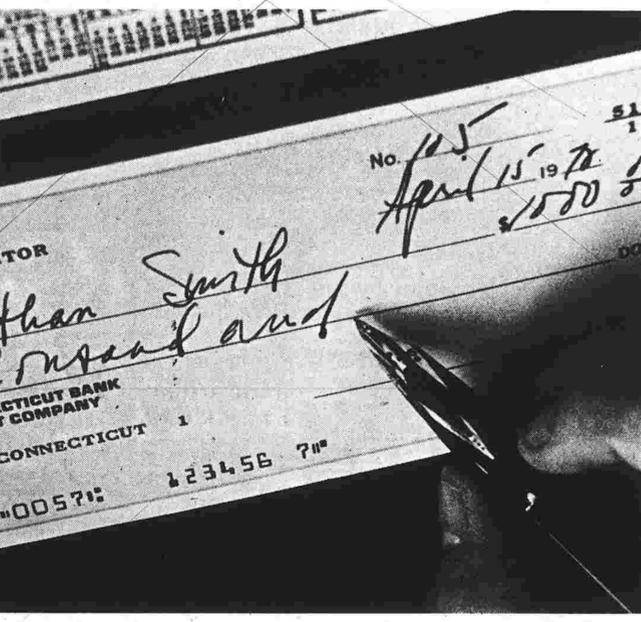 No. 105
51
1
April 15 1978
$1000
TOR
than Smith
DO
ousand and
CTICUT BANK
T COMPANY
CONNECTICUT 1
"00571: 123456 7"